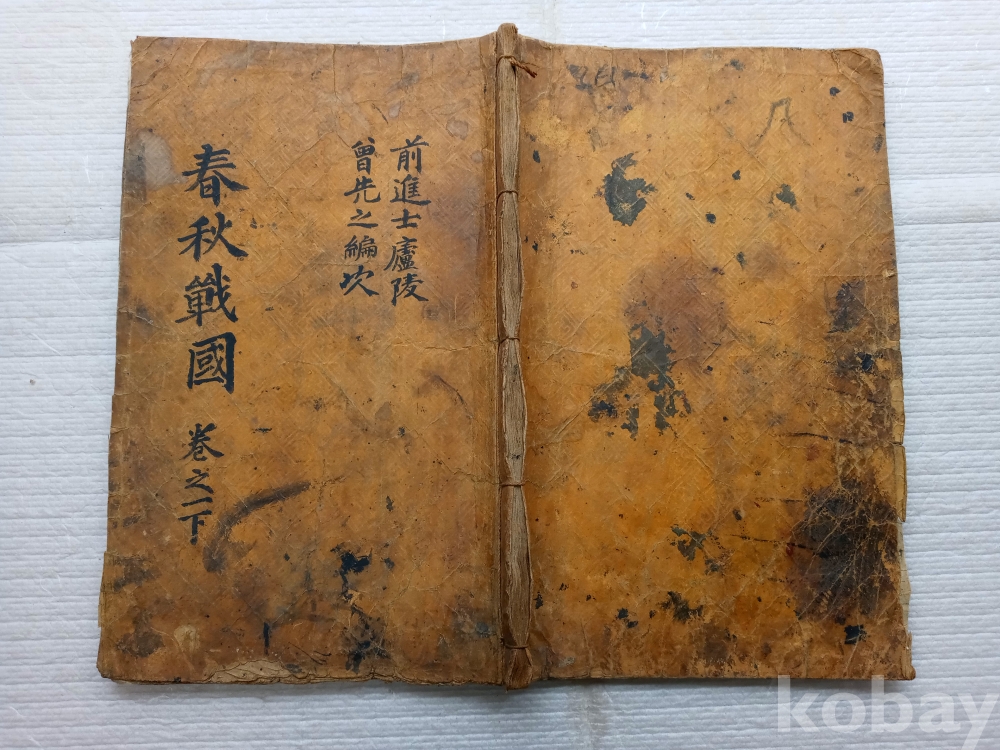 前進士廬陵
曾先之編次
春秋戰國 卷之一下
kobay